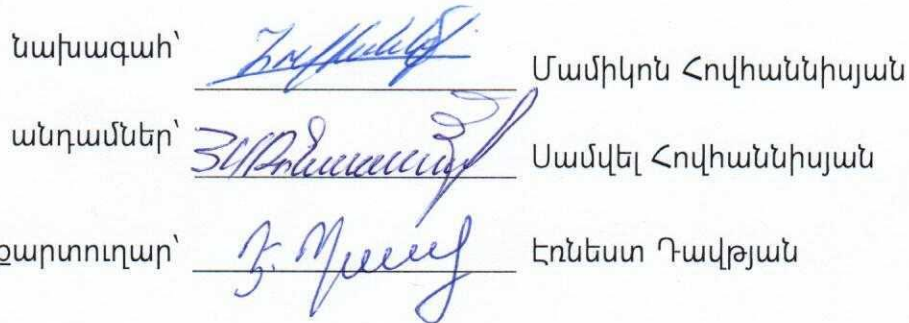 նախագահ՝ Մամիկոն Հովհաննիսյան
անդամներ՝ Սամվել Հովհաննիսյան
քարտուղար՝ Էռնեստ Դավթյան